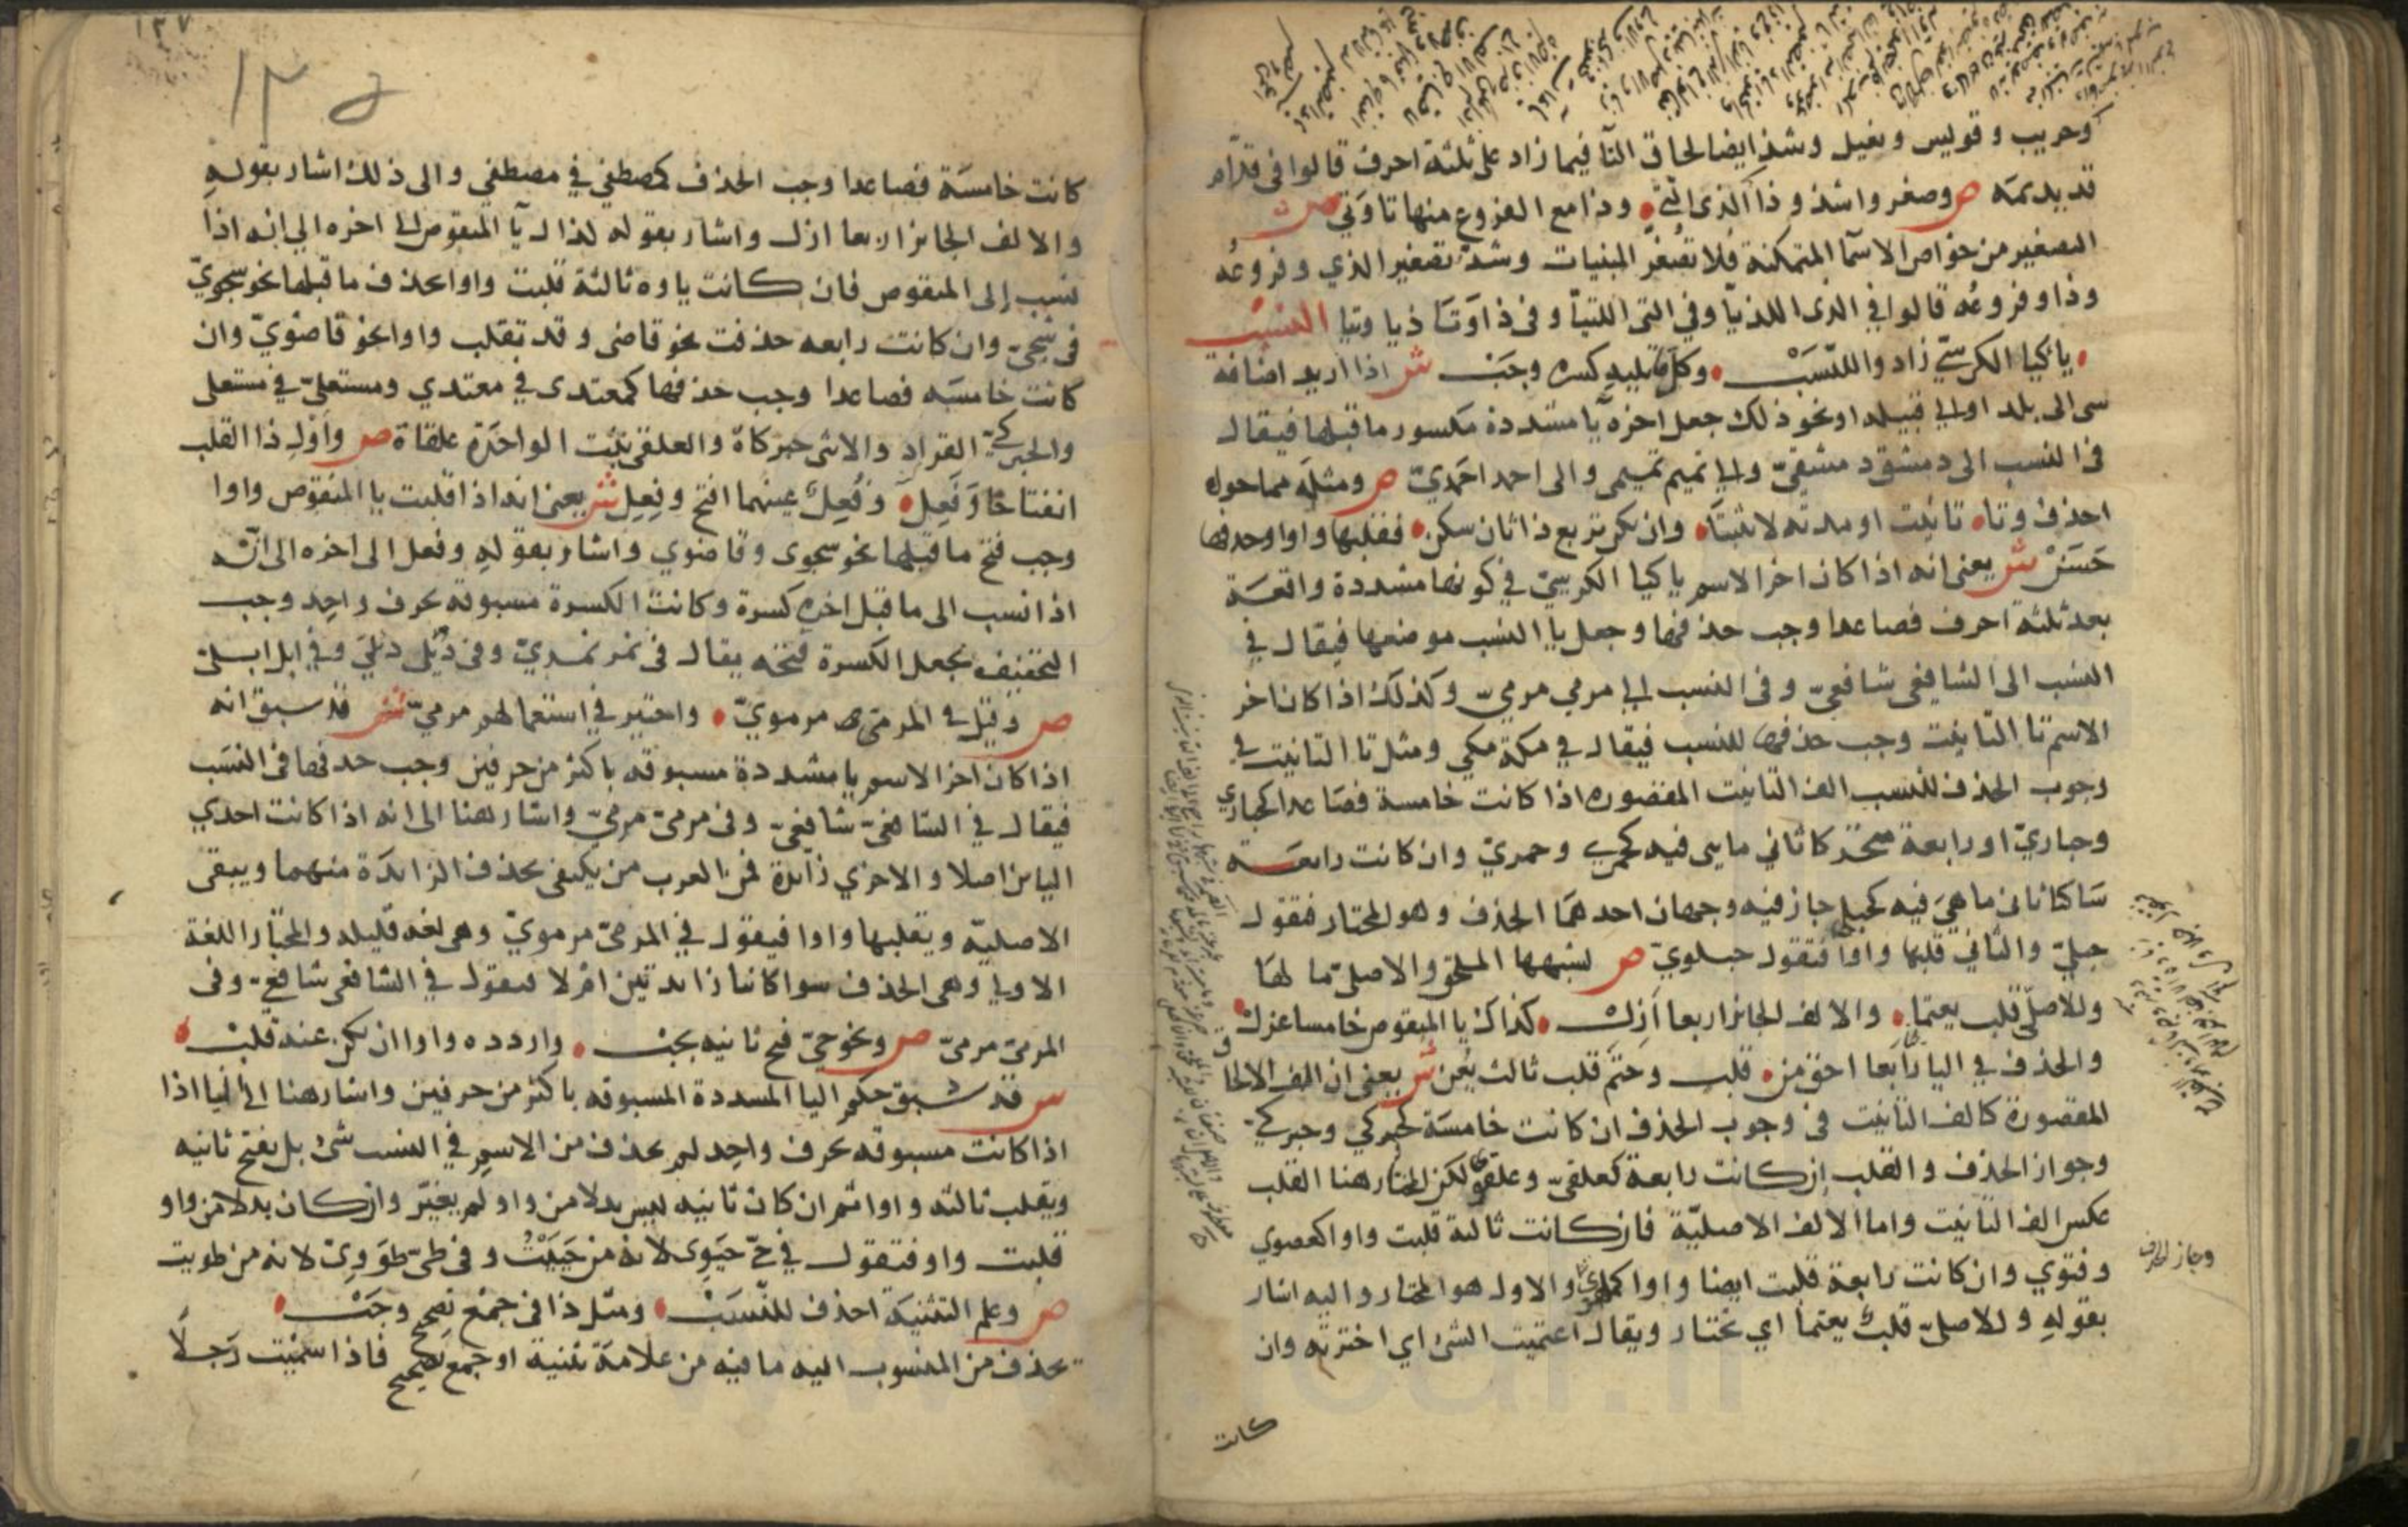 وحريب وقويس ونعيل وشذ ايضا لحاق التآ فيما زاد على ثلثة احرف قالوا فى قدّام
قديديمه ص وصغروا شذوذا الذي التي وذا مع الفروع منها تا وتي ش
التصغير من خواص الاسمآ المتمكنة فلا تصغر المبنيات وشذّ تصغير الذي وفروعُه
وذا وفروعُه قالوا في الذى اللذيّا وفي التي اللتيّا وفى ذا وَتَا ذيا وتيا النسب
يا كيا الكرسيّ زاد واللنّسَبْ وكل ما يليه كسره وجَبْ ش اذا اريد اضافة
شى الى بلد او الى قبيله او نحو ذلك جعل اخره يآ مشددة مكسور ما قبلها فيقال
فى النسب الى دمشق دمشقيّ والى تميم تميمى والى احمد احمديّ ص ومثلَه مما حواه
احذف وتا تانيث او مدته لا تثبتَا وان تكن تربع ذا ثان سكن فقلبها واوا وحذفها
حَسَنْ ش يعنى انه اذا كان اخر الاسم يا كيا الكرسيّ في كونها مشددة واقعة
بعد ثلثة احرف فصاعدا وجب حذفها وجعل يا النسب موضعها فيقال في
النسب الى الشافعى شافعيّ وفى النسب الى مرمي مرميّ وكذلك اذا كان اخر
الاسم تا التانيث وجب حذفها للنسب فيقال في مكة مكي ومثل تا التانيث في
وجوب الحذف للنسب الف التانيث المقصوره اذا كانت خامسة فصاعدا كحبارى
وحباريّ او رابعة متحركا ثاني ما هى فيه كجمزى وجمزيّ وان كانت رابعة
ساكنا ثانى ما هيَ فيه كحبلى جاز فيه وجهان احدهمَا الحذف وهو المختار فتقول
حبليّ والثاني قلبها واوا فتقول حبلويّ ص لشبهها الملحق والاصلىّ ما لهَا
وللاصلّى قلب يعتما والالف الجائز اربعا اَزِلْ كذاك يا المنقوص خامسا عزل
والحذف في اليا رابَعا احق من قلب وحتم قلب ثالث يعُن ش يعنى ان الف الالحاق
المقصورة كالف التانيث فى وجوب الحذف ان كانت خامسَة كحبركي وحبركيّ
وجواز الحذف والقلب ان كانت رابعة كعلقىّ وعلقويّ لكن المختار هنا القلب
عكس الف التانيث واما الالف الاصليّة فان كانت ثالثة قلبت واوا كعصوي
وفتوي وان كانت رابعة قلبت ايضا واوا كملهويّ والاول هو المختار واليه اشار
بقولهِ وللاصلىّ قلبٌ يعتما اي يختار ويقال اعتميت الشئ اي اخترته وان
كانت
وجاز الحذف
١٣٧
كانت خامسَة فصاعدا وجب الحذف كمصطفي في مصطفي والى ذلك اشار بقولهِ
والالف الجائز اربعا ازل واشار بقوله كذاك يآ المنقوص الى اخره الي انه اذا
نسب إلى المنقوص فان كانت ياوه ثالثة قلبت واوا بحذف ما قبلها نحو شجويّ
فى شجىّ وان كانت رابعه حذفت نحو قاضى وقد تقلب واوا نحو قاضويّ وان
كانت خامسَه فصاعدا وجب حذفها كمعتدى في معتدي ومستعلىّ في مستعلى
والحبركيّ القراد والانثى حبركاة والعلقى نبت الواحدَة علقاة ص وَاَوْلِ ذا القلب
انفتاحًا وَفَعِل وَفُعِلٌ عينهما افتح وفِعِل ش يعنى انه اذا قلبت يا المنقوص واوا
وجب فتح ما قبلها نحو شجوى وقاضوي واشار بقولهِ وفعل الى اخره الى انّه
اذا نسب الى ما قبل اخره كسرة وكانت الكسرة مسبوقه بحرف واحِد وجب
التخفيف بجعل الكسرة فتحَه يقال فى نمر نمريّ وفى دُئِل دئليّ وفي ابل ابلىّ
ص وقيل في المرمىّ مرمويّ واختير في استعمالهم مرمىّ ش قد سبق انه
اذا كان اخر الاسم يا مشددة مسبوقه باكثر من حرفين وجب حذفها فى النسَب
فيقال في الشافعىّ شافعىّ وفى مرمىّ مرمىّ واشار هنا الى انه اذا كانت احدي
اليائين اصلا والاخري زايدة فمن العرب من يكتفى بحذف الزايدَة منهما ويبقى
الاصليّه ويقلبها واوا فيقول في المرمىّ مرمويّ وهى لغه قليله والمختار اللغة
الاولي وهى الحذف سوا كانتا زايدتين ام لا فيقول في الشافعى شافعىّ وفى
المرمىّ مرمىّ ص ونحو حىّ فتح ثانيه يجب واردده واوا ان يكن عنه قلبْ
ش قد سبق حكم اليا المشددة المسبوقه باكثر من حرفين واشار هنا الى انها اذا
اذا كانت مسبوقه بحرف واحِد لم يحذف من الاسمِ في النسب شئ بل يفتح ثانيه
ويقلب ثالثه واوا ثم ان كان ثانيه ليس بدلا من واو لم يغيّر وان كان بدلا من واو
قلبت واو فتقول في حىّ حيَوِى لانه من حَيَيْتُ وفى طىّ طوَوِىّ لانه من طويت
ص وعلم التثنيَة احذف للنّسَبْ ومثل ذا فى جمْع تصحيح وجَبْ
يحذف من المنسوب اليه ما فيه من علامَة تثنية او جمع تصحيح فاذا سمّيْت رَجلًا